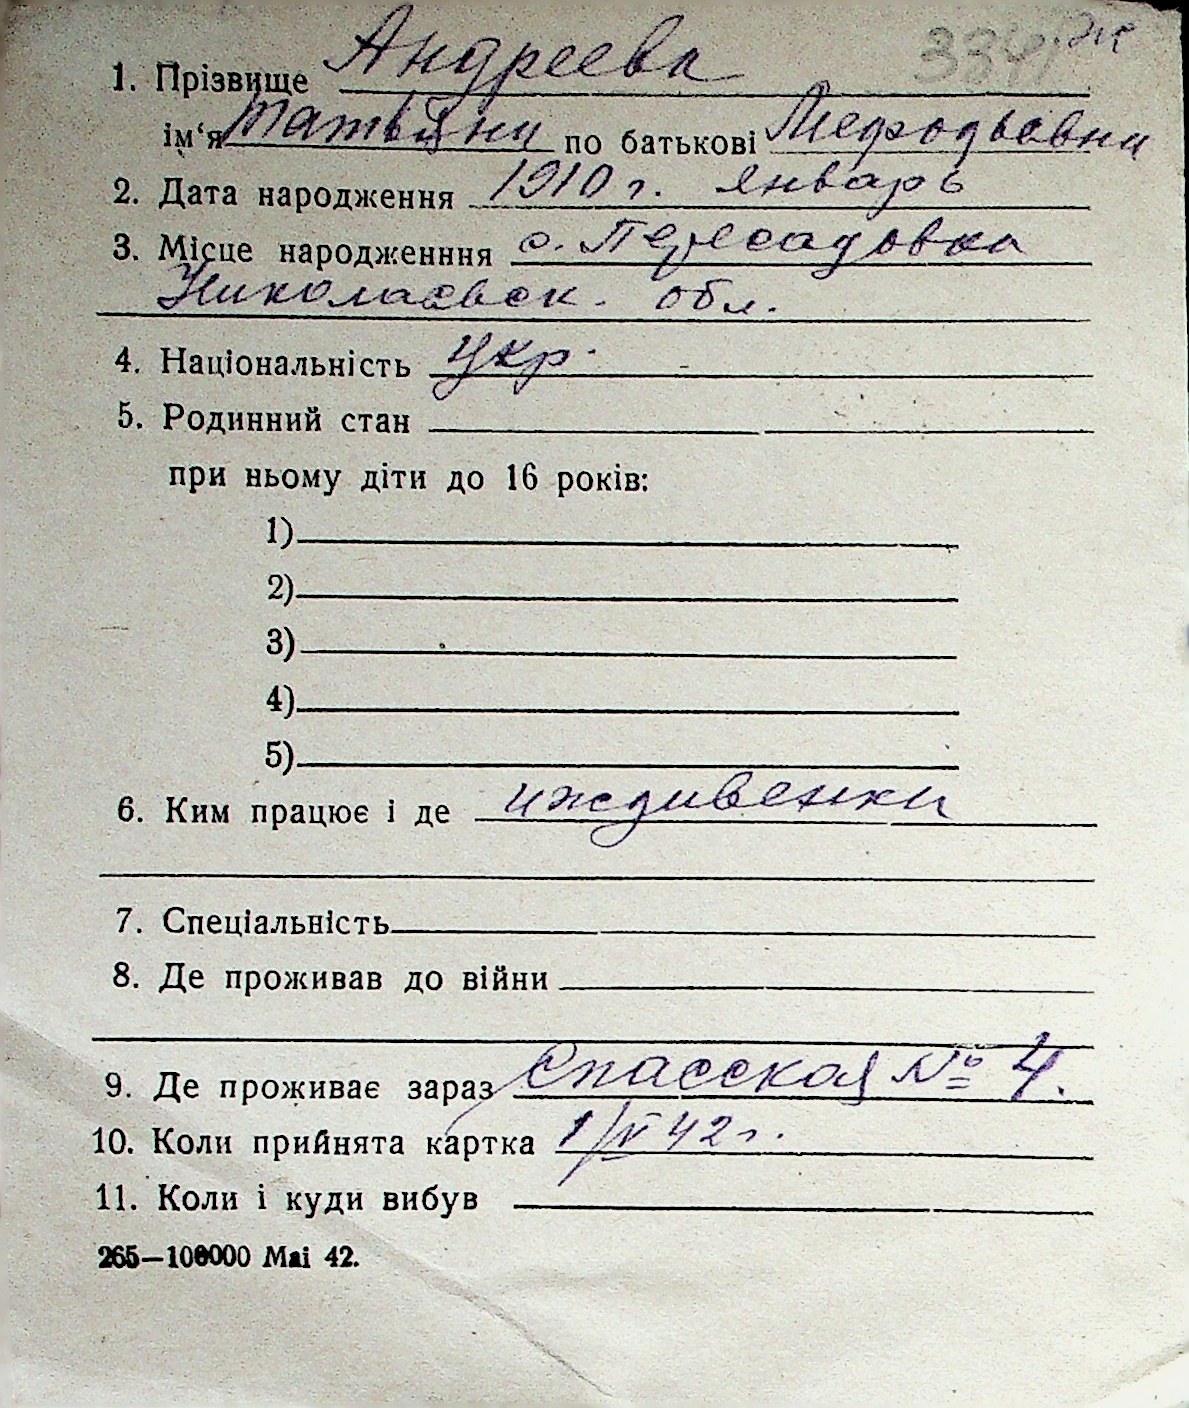 334
1. Прізвище Андреева
ім'я Татьяна по батькові Мефодьевна
2. Дата народження 1910 г. январь
3. Місце народженння с. Пересадовка
Николаевск. обл.
4. Національність укр.
5. Родинний стан
при ньому діти до 16 років:
1)
2)
3)
4)
5)
6. Ким працює і де иждивенка
7. Спеціальність
8. Де проживав до війни
9. Де проживає зараз Спасская № 4.
10. Коли прийнята картка 1/V 42 г.
11. Коли і куди вибув
265—100000 Маі 42.